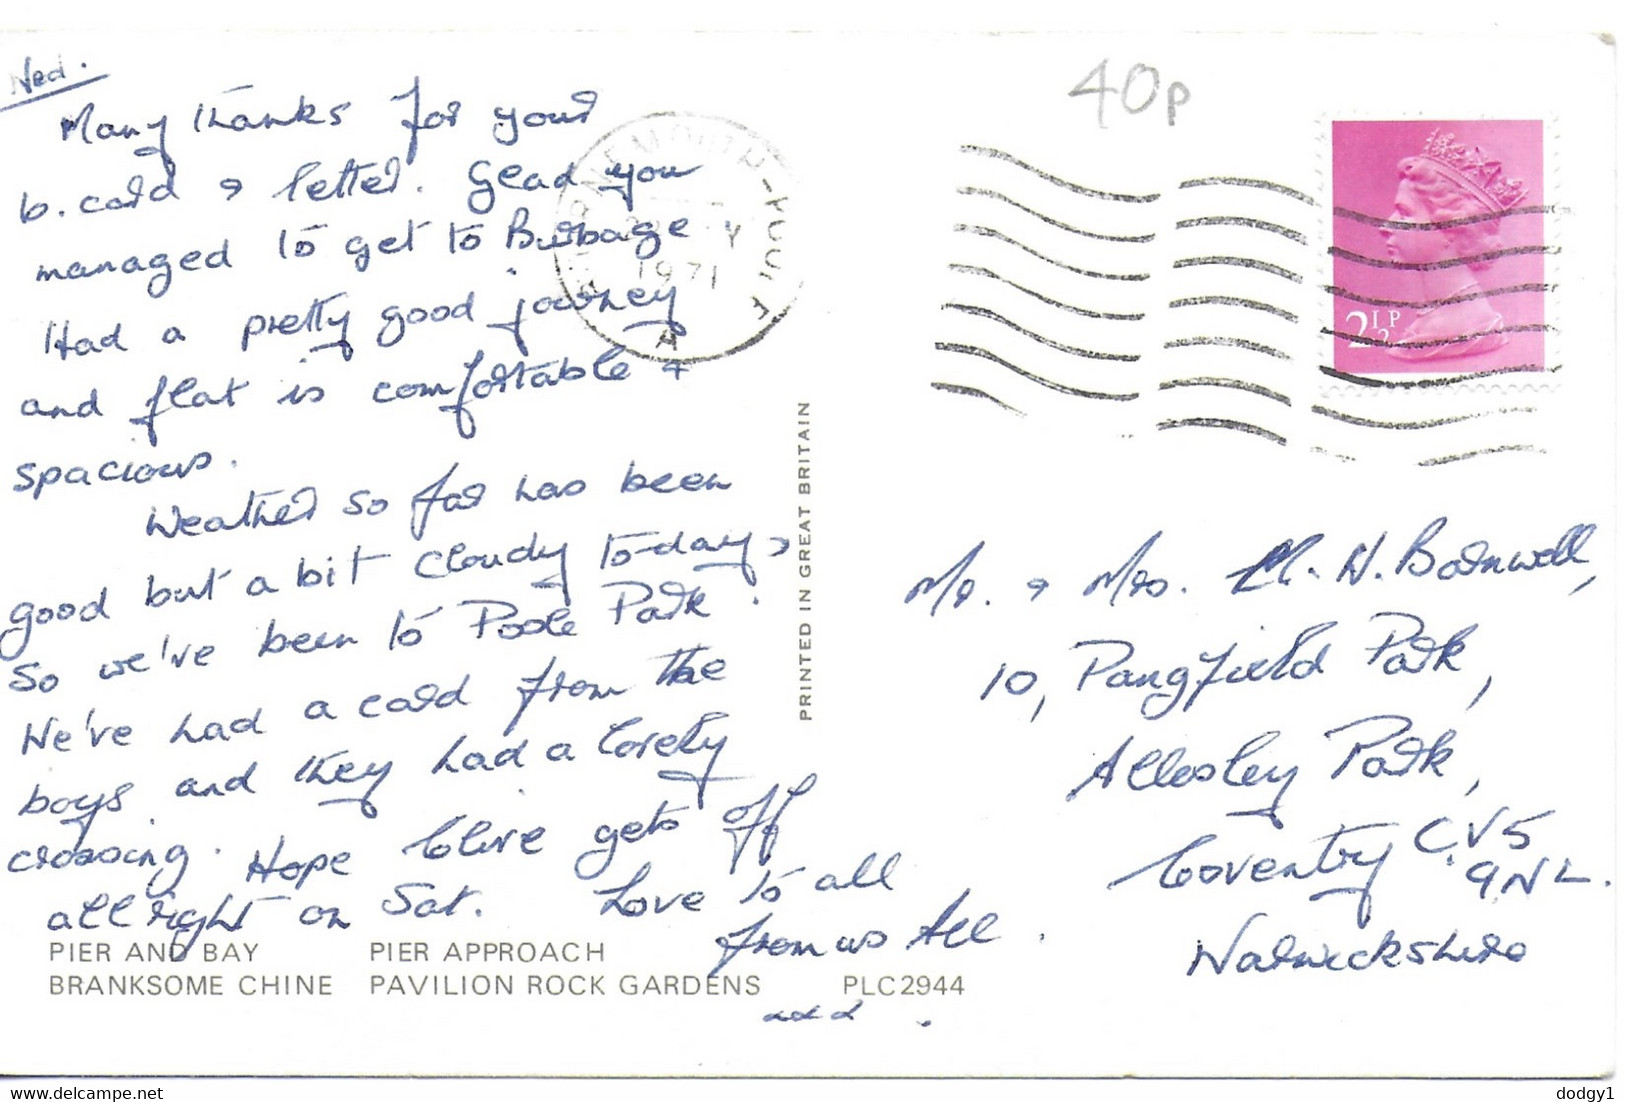 Wed.
Many thanks for your
b.card & letter. Glad you
managed to get to Burbage.
Had a pretty good journey
and flat is comfortable &
spacious.
Weather so far has been
good but a bit cloudy to-day,
so we've been to Poole Park.
We've had a card from the
boys and they had a lovely
crossing. Hope Clive gets off
all right on Sat. Love to all
from us All.
PIER AND BAY PIER APPROACH
BRANKSOME CHINE PAVILION ROCK GARDENS PLC2944
PRINTED IN GREAT BRITAIN
BOURNEMOUTH-POOLE
1971
A
40p
2½P
Mr. & Mrs. N. Barnwell,
10, Pangfield Park,
Allesley Park,
Coventry CV5
9NL.
Warwickshire
delcampe.net
dodgy1